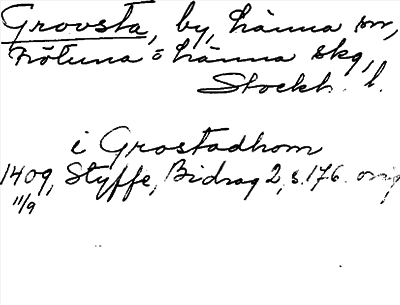 Grovsta, by, Länna sn,
Frötuna o Länna skg,
Stockh. l.
i Grostadhom
1409, Styffe, Bidrag 2, s. 176. orig
11/9